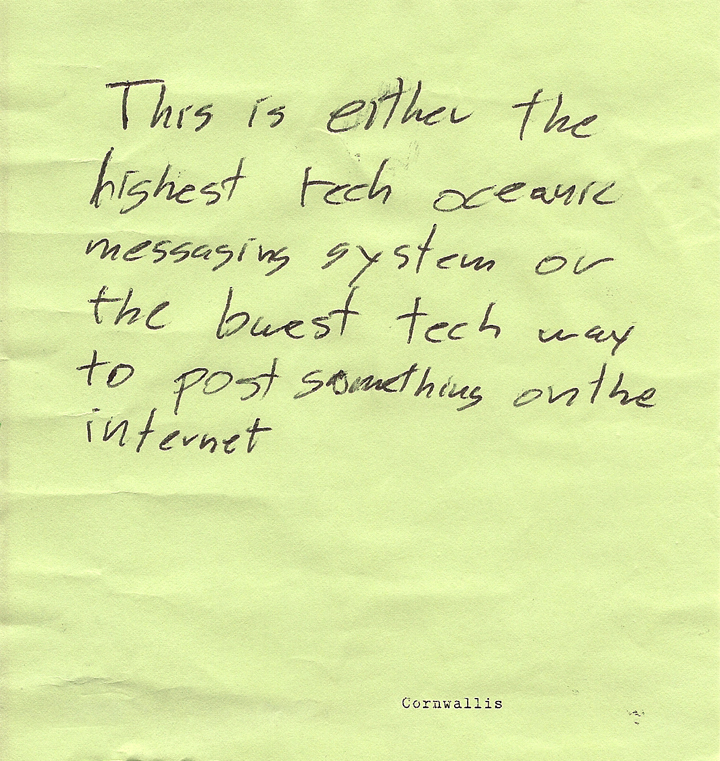 This is either the
highest tech oceanic
messaging system or
the lowest tech way
to post something on the
internet
Cornwallis